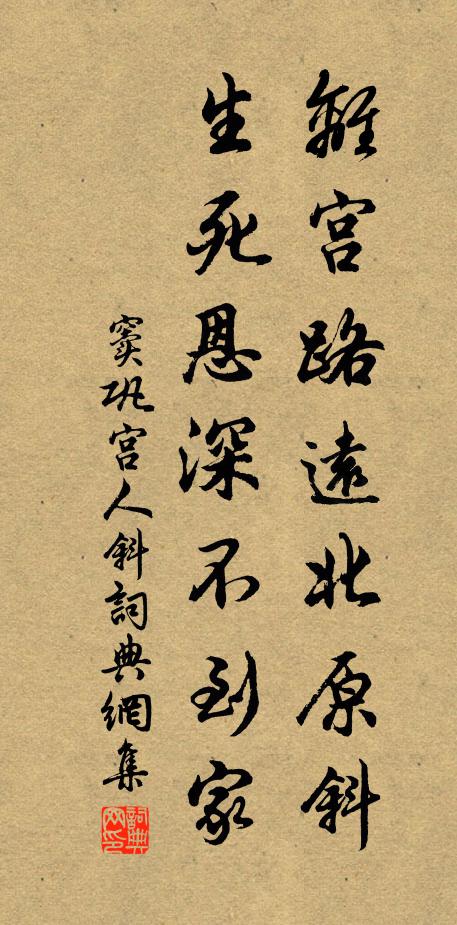 離宮路遠北原斜
生死恩深不到家
竇巩宮人斜詞典網集
詞典网印